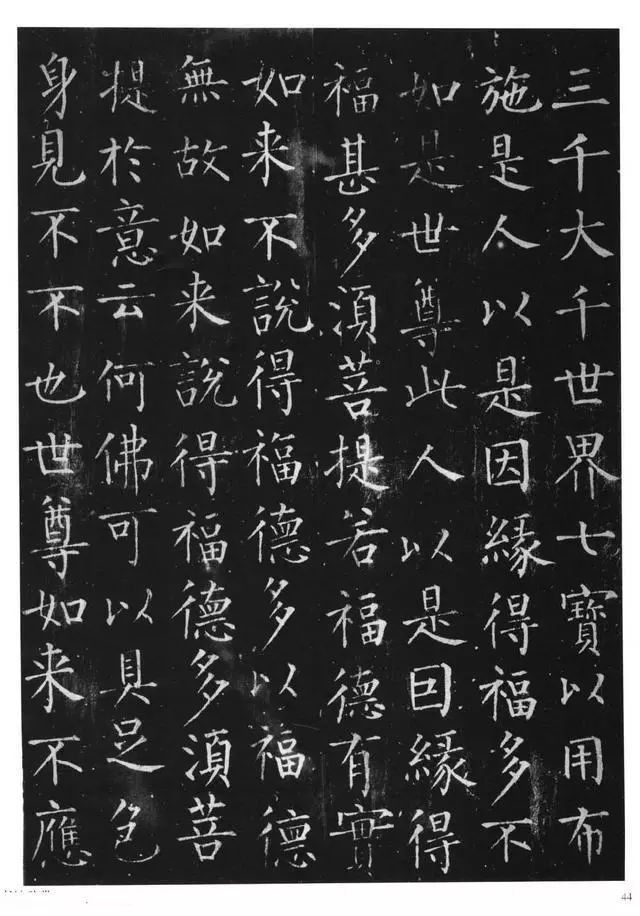 三千大千世界七寶以用布
施是人以是因緣得福多不
如是世尊此人以是因緣得
福甚多須菩提若福德有實
如来不說得福德多以福德
無故如来說得福德多須菩
提於意云何佛可以具足色
身見不不也世尊如来不應
44